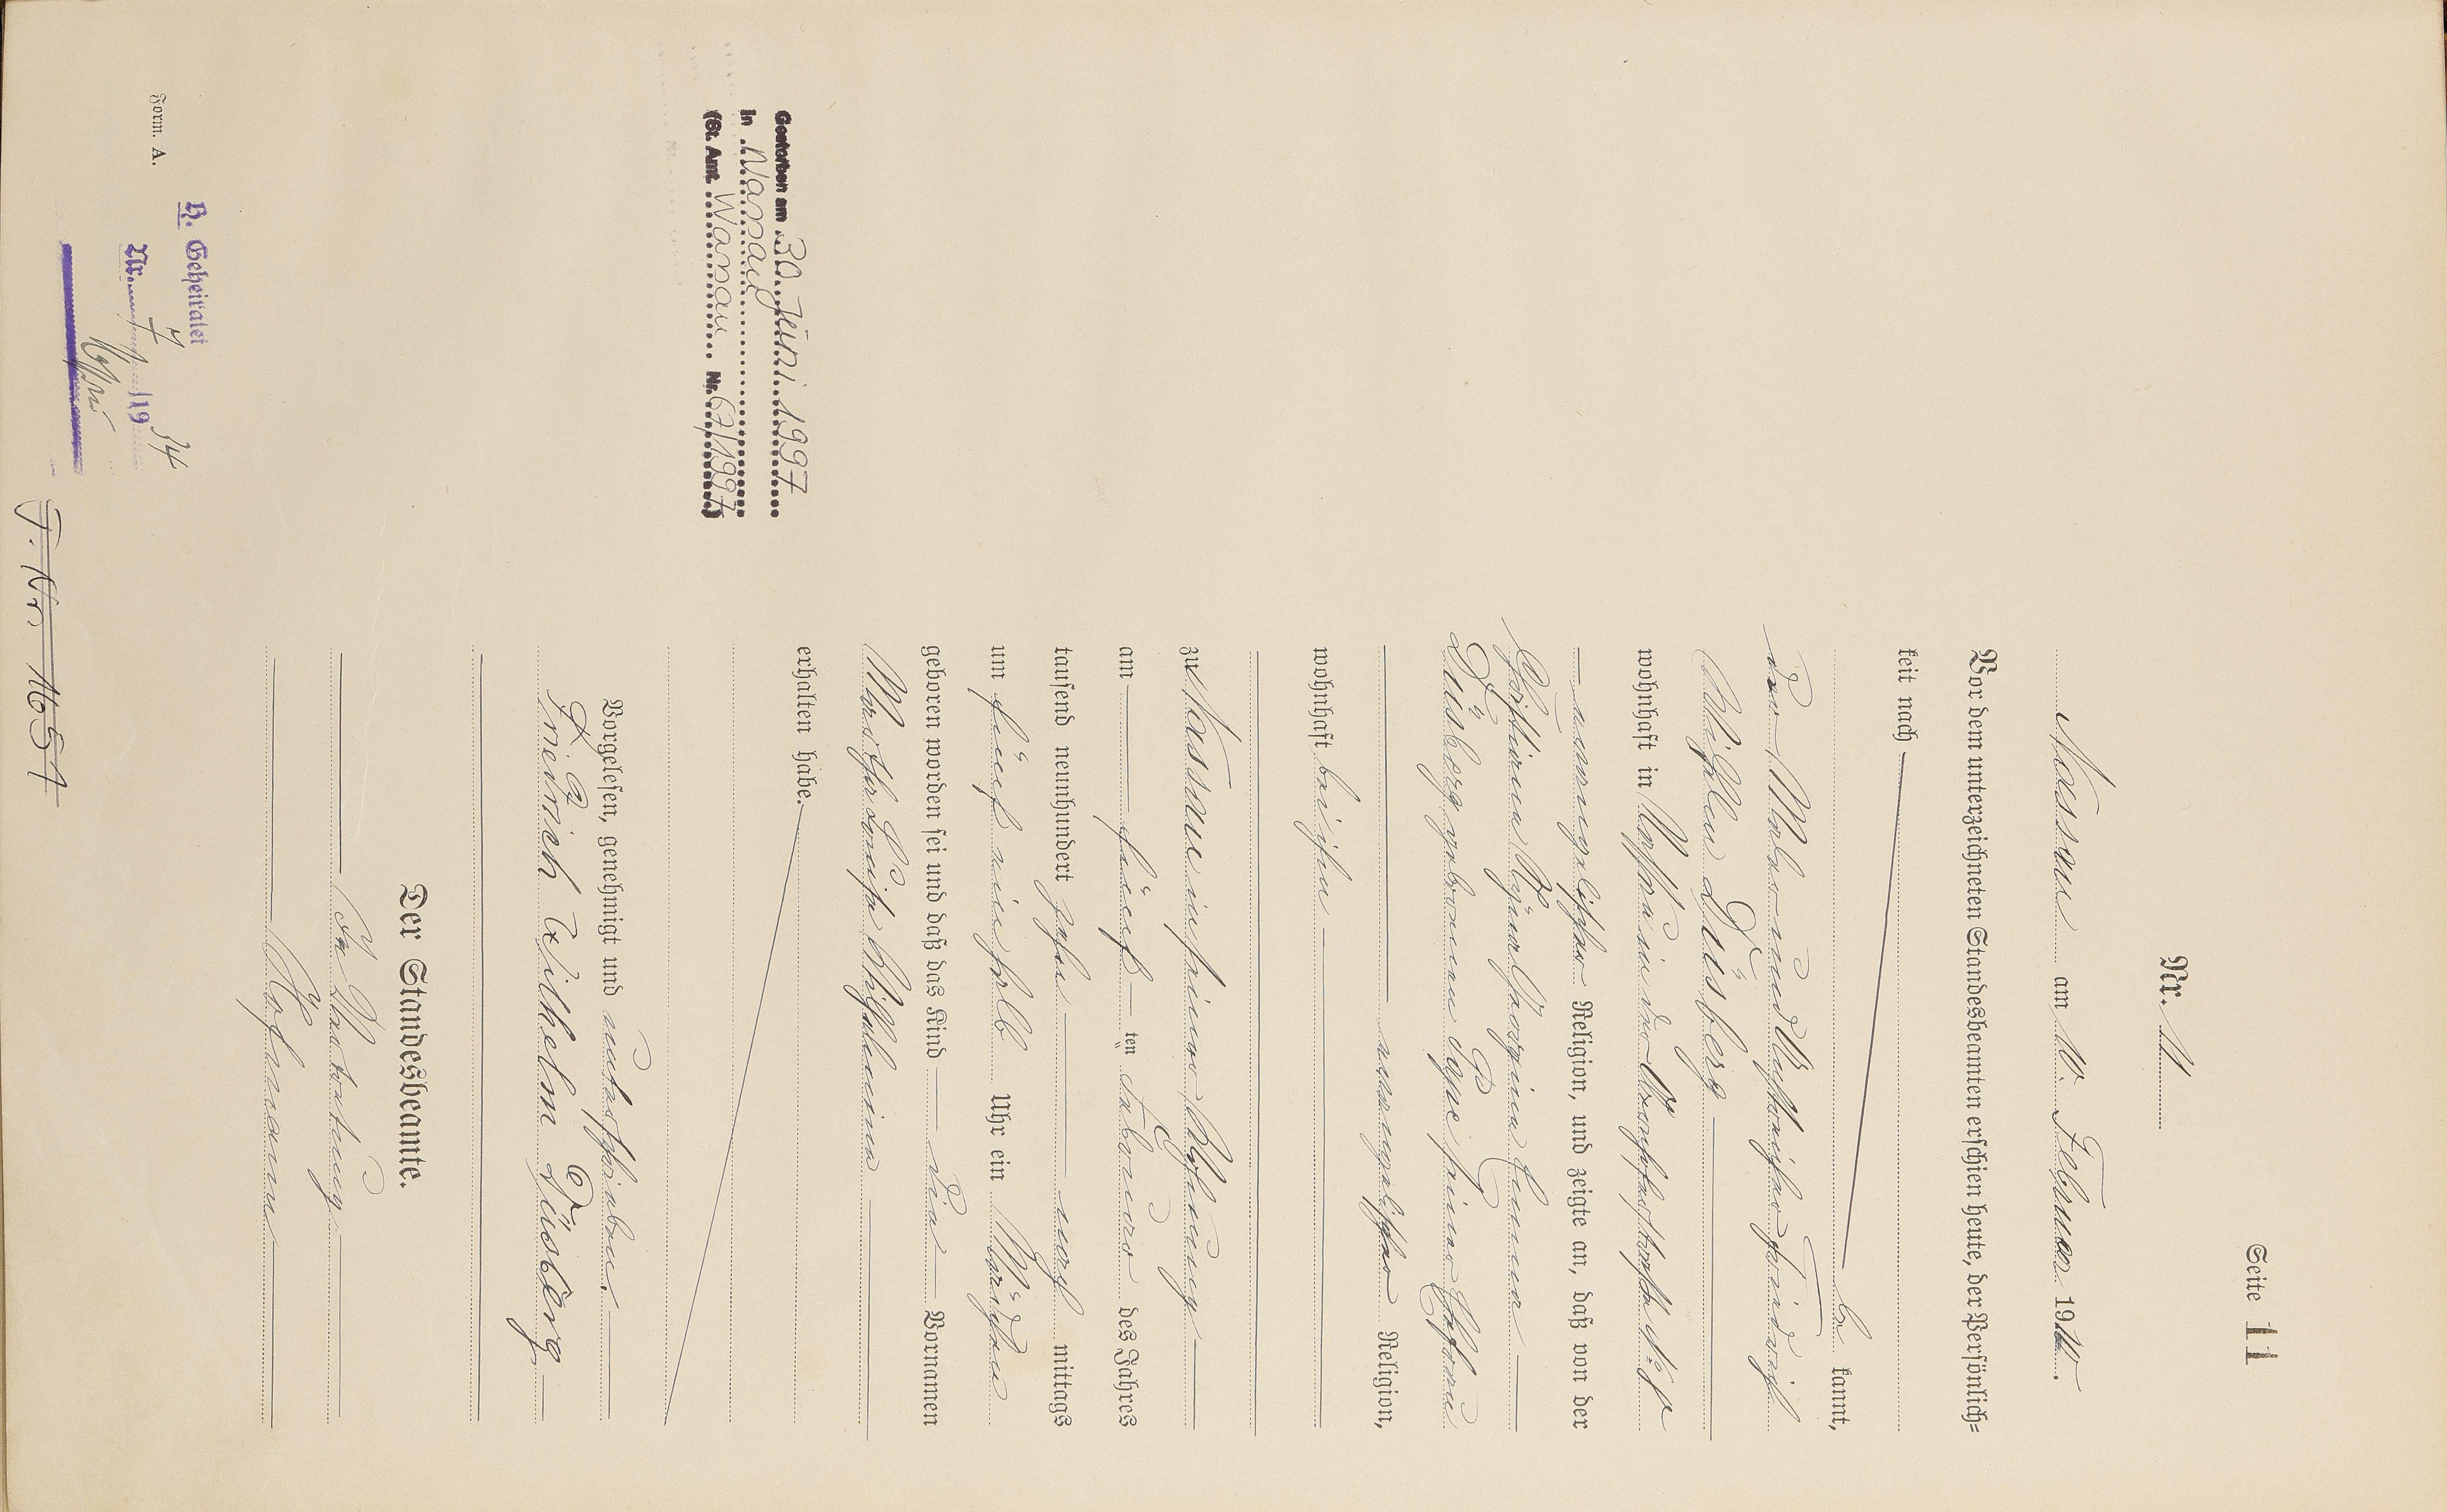 Seite 11
Nr. 11
Nassau am 10. Februar 1910.
Vor dem unterzeichneten Standesbeamten erschien heute, der Persönlich-
keit nach
be kannt,
der Maler und Anstreicher Heinrich
Wilhelm Düsberg
wohnhaft in Nassau in der
evangelischer Religion, und zeigte an, daß von der
Emma
Düsberg geborenen Pope seiner Ehefrau
evangelischer Religion,
wohnhaft bei ihm
zu Nassau in seiner Wohnung
am fünf ten Februar des Jahres
tausend neunhundert zehn nach mittags
um fünf ein halb Uhr ein Mädchen
geboren worden sei und daß das Kind die Vornamen
Luise Wilhelmine
erhalten habe.
Vorgelesen, genehmigt und unterschrieben.
Heinrich Wilhelm Düsberg
Der Standesbeamte.
In Vertretung
Hofmann
Gestorben am 30. Juni 1997
in Nassau
(St. Amt Nassau Nr. 67/1997)
Form. A.
H. Geheiratet
Nr. 7 /19 34
J. Nr. 1651